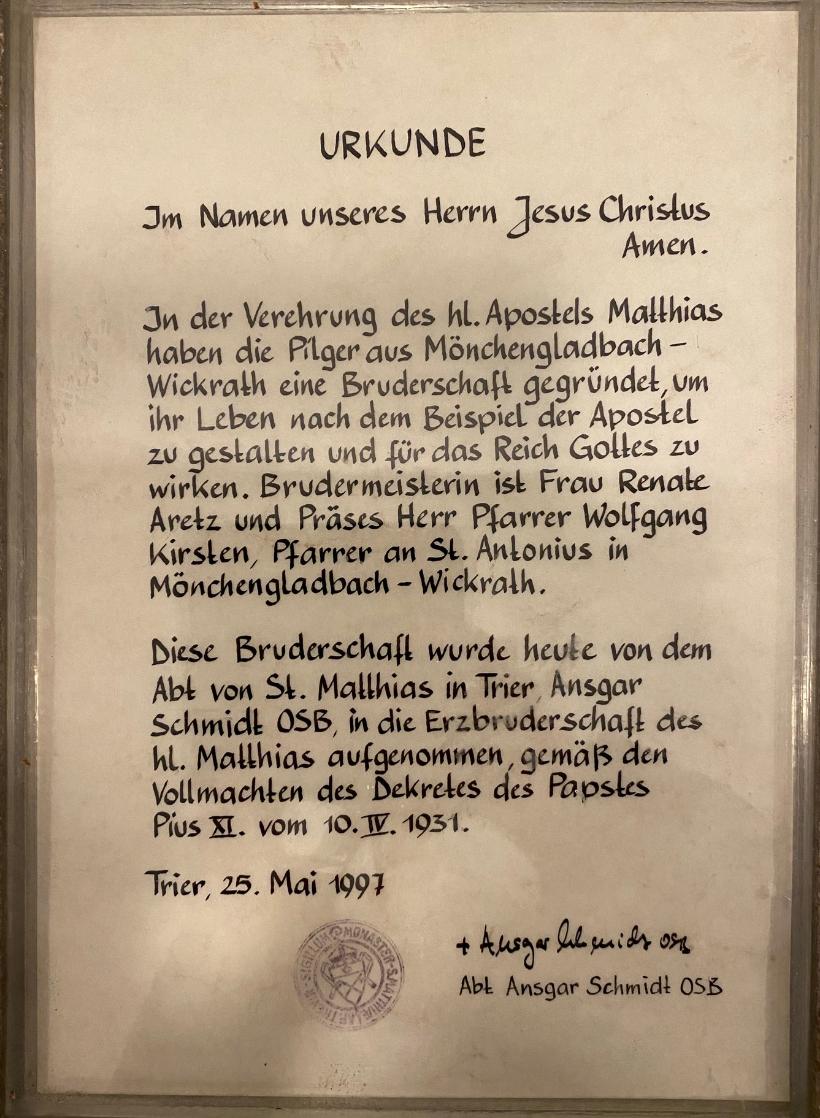 URKUNDE
Im Namen unseres Herrn Jesus Christus
Amen.
In der Verehrung des hl. Apostels Matthias
haben die Pilger aus Mönchengladbach -
Wickrath eine Bruderschaft gegründet, um
ihr Leben nach dem Beispiel der Apostel
zu gestalten und für das Reich Gottes zu
wirken. Brudermeisterin ist Frau Renate
Aretz und Präses Herr Pfarrer Wolfgang
Kirsten, Pfarrer an St. Antonius in
Mönchengladbach - Wickrath.
Diese Bruderschaft wurde heute von dem
Abt von St. Matthias in Trier, Ansgar
Schmidt OSB, in die Erzbruderschaft des
hl. Matthias aufgenommen, gemäß den
Vollmachten des Dekretes des Papstes
Pius XI. vom 10. IV. 1931.
Trier, 25. Mai 1997
SIGILLUM MONASTER
+ Ansgar Schmidt OSB
Abt Ansgar Schmidt OSB